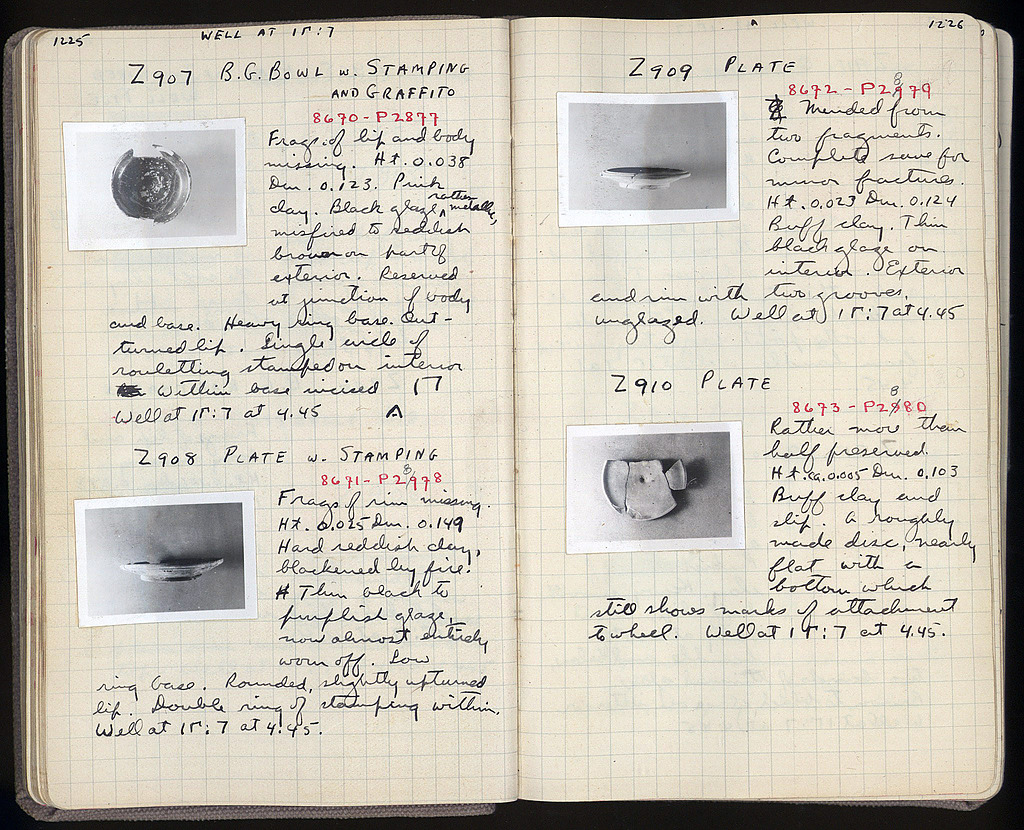 1225
WELL AT 1Γ:7
Z907 B.G. BOWL w. STAMPING
AND GRAFFITO
8670 - P2877
Frags. of lip and body
missing. Ht. 0.038
Dm. 0.123. Pink
clay. Black glaze, rather metallic,
misfired to reddish
brown on part of
exterior. Reserved
at junction of body
and base. Heavy ring base. Out-
turned lip. Single circle of
rouletting stamped on interior
Within base incised Γ7
Well at 1Γ:7 at 4.45 A
Z908 PLATE w. STAMPING
8671 - P2878
Frags of rim missing.
Ht. 0.025 Dm. 0.149
Hard reddish clay,
blackened by fire.
Thin black to
purplish glaze,
now almost entirely
worn off. Low
ring base. Rounded, slightly upturned
lip. Double ring of stamping within.
Well at 1Γ:7 at 4.45.
1226
Z909 PLATE
8672 - P2879
Mended from
two fragments.
Complete save for
minor fractures.
Ht. 0.023 Dm. 0.124
Buff clay. Thin
black glaze on
interior. Exterior
and rim with two grooves,
unglazed. Well at 1Γ:7 at 4.45
Z910 PLATE
8673 - P2880
Rather more than
half preserved.
Ht. ca. 0.005 Dm. 0.103
Buff clay and
slip. A roughly
made disc, nearly
flat with a
bottom which
still shows marks of attachment
to wheel. Well at 1Γ:7 at 4.45.